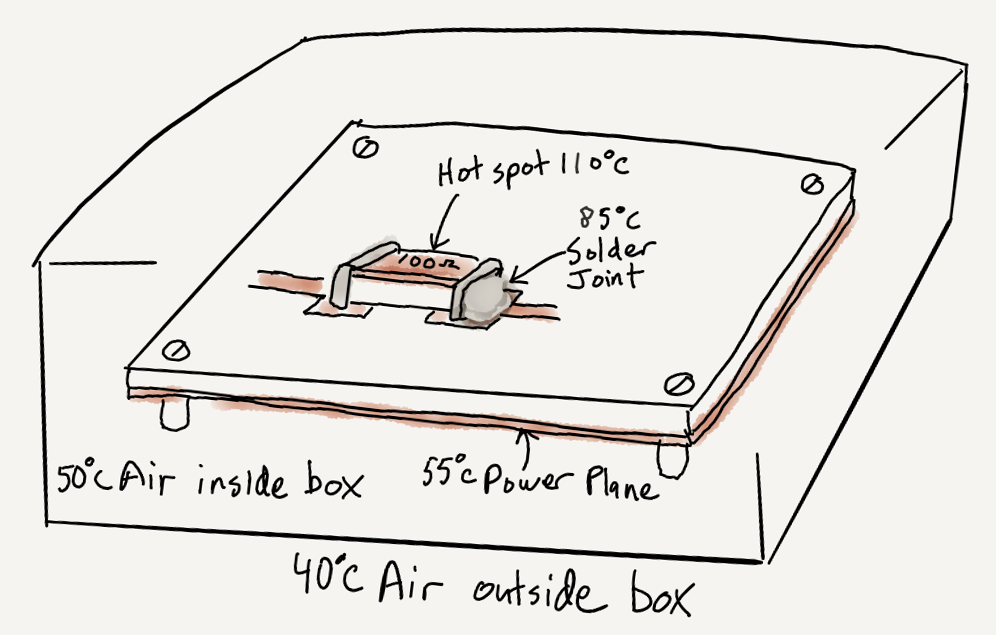 Hot spot 110°C
85°C
Solder
Joint
100Ω
50°C Air inside box
55°C Power Plane
40°C Air outside box